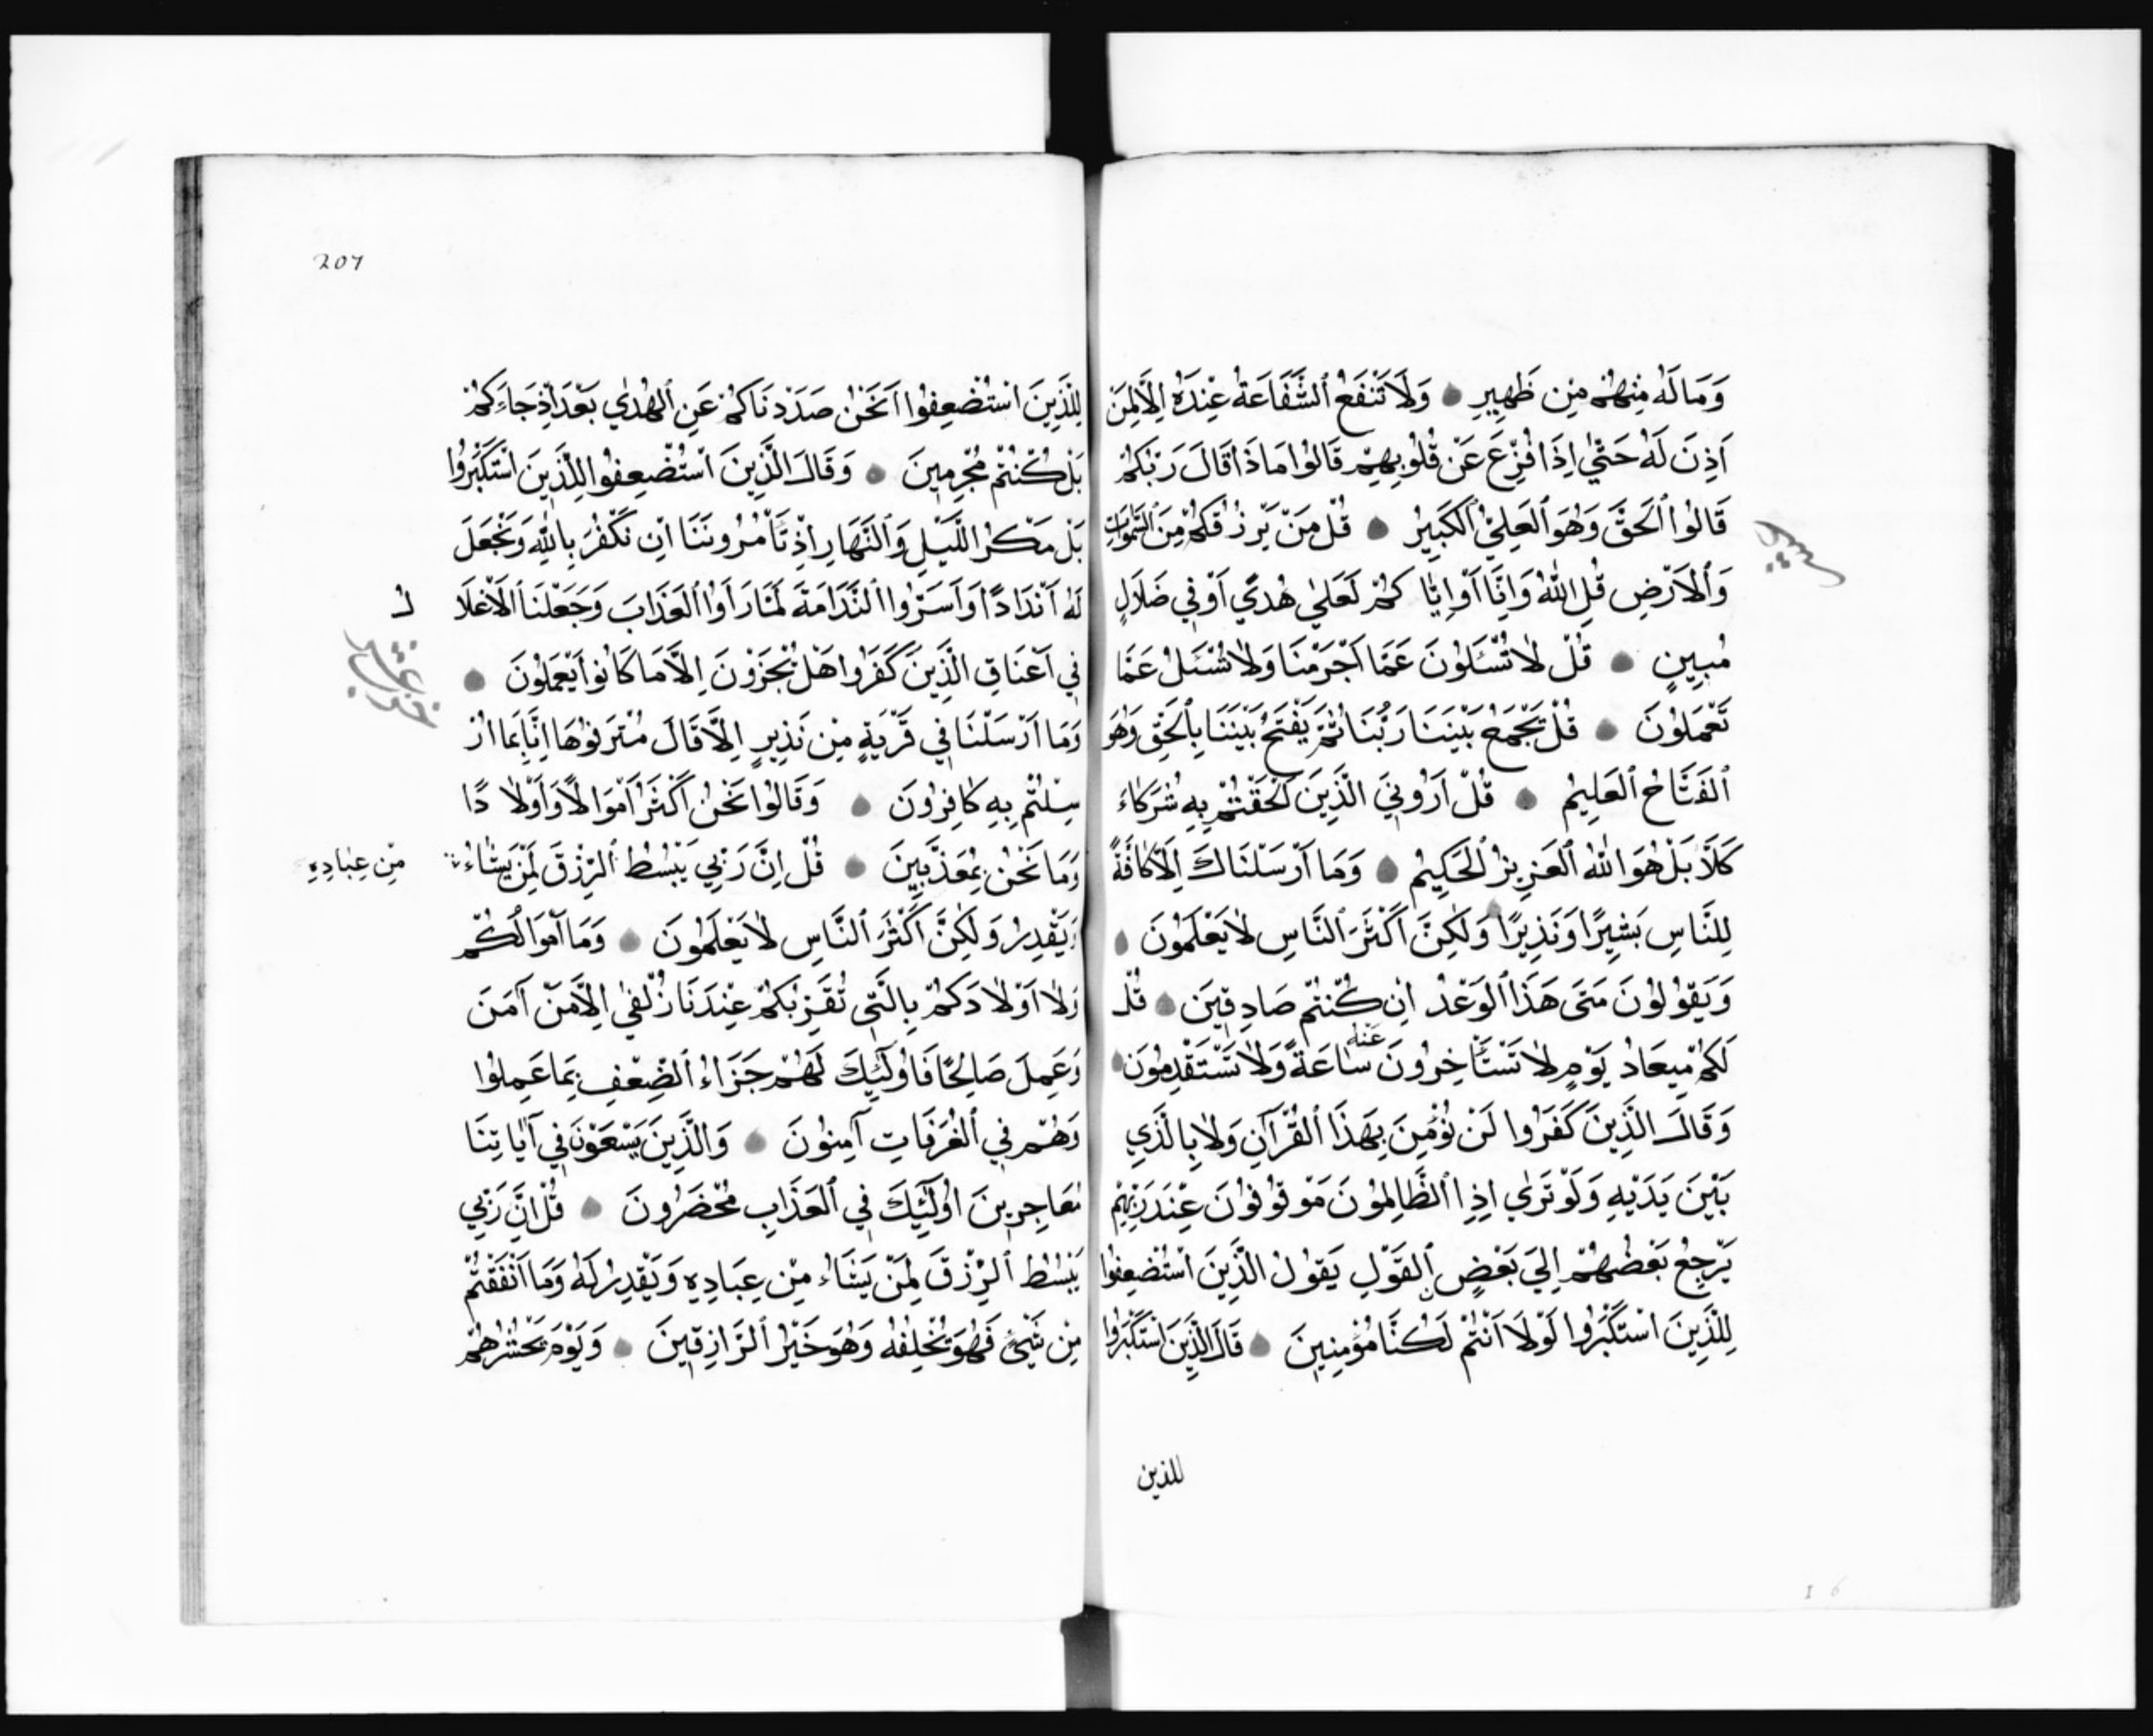 وَمَا لَهُ مِنْهُمْ مِنْ ظَهِيرٍ ۝ وَلَا تَنْفَعُ ٱلشَّفَاعَةُ عِنْدَهُ إِلَّا لِمَنْ
اَذِنَ لَهُ حَتّٰي اِذَا فُزِّعَ عَنْ قُلُوبِهِمْ قَالُوا مَاذَا قَالَ رَبُّكُمْ
قَالُوا ٱلْحَقَّ وَهُوَ ٱلْعَلِيُّ ٱلْكَبِيرُ ۝ قُلْ مَنْ يَرْزُقُكُمْ مِنَ ٱلسَّمٰوَاتِ
وَٱلْاَرْضِ قُلِ اللّٰهُ وَاِنَّا اَوْ اِيَّاكُمْ لَعَلٰي هُدًي اَوْ فِي ضَلَالٍ
مُبِينٍ ۝ قُلْ لَا تُسْئَلُونَ عَمَّا اَجْرَمْنَا وَلَا نُسْئَلُ عَمَّا
تَعْمَلُونَ ۝ قُلْ يَجْمَعُ بَيْنَنَا رَبُّنَا ثُمَّ يَفْتَحُ بَيْنَنَا بِٱلْحَقِّ وَهُوَ
ٱلْفَتَّاحُ ٱلْعَلِيمُ ۝ قُلْ اَرُونِيَ الَّذِينَ اَلْحَقْتُمْ بِهِ شُرَكَاءَ
كَلَّا بَلْ هُوَ اللّٰهُ ٱلْعَزِيزُ ٱلْحَكِيمُ ۝ وَمَا اَرْسَلْنَاكَ اِلَّا كَافَّةً
لِلنَّاسِ بَشِيرًا وَنَذِيرًا وَلٰكِنَّ اَكْثَرَ ٱلنَّاسِ لَا يَعْلَمُونَ ۝
وَيَقُولُونَ مَتَى هَذَا ٱلْوَعْدُ اِنْ كُنْتُمْ صَادِقِينَ ۝ قُلْ
لَكُمْ مِيعَادُ يَوْمٍ لَا تَسْتَأْخِرُونَ عَنْهُ سَاعَةً وَلَا تَسْتَقْدِمُونَ ۝
وَقَالَ الَّذِينَ كَفَرُوا لَنْ نُؤْمِنَ بِهَذَا ٱلْقُرْآنِ وَلَا بِالَّذِي
بَيْنَ يَدَيْهِ وَلَوْ تَرٰي اِذِ ٱلظَّالِمُونَ مَوْقُوفُونَ عِنْدَ رَبِّهِمْ
يَرْجِعُ بَعْضُهُمْ اِلَي بَعْضٍ ٱلْقَوْلَ يَقُولُ الَّذِينَ اسْتُضْعِفُوا
لِلَّذِينَ اسْتَكْبَرُوا لَوْلَا اَنْتُمْ لَكُنَّا مُؤْمِنِينَ ۝ قَالَ الَّذِينَ اسْتَكْبَرُوا
للذين
207
لِلَّذِينَ اسْتُضْعِفُوا اَنَحْنُ صَدَدْنَاكُمْ عَنِ ٱلْهُدٰي بَعْدَ اِذْ جَاءَكُمْ
بَلْ كُنْتُمْ مُجْرِمِينَ ۝ وَقَالَ الَّذِينَ اسْتُضْعِفُوا لِلَّذِينَ اسْتَكْبَرُوا
بَلْ مَكْرُ اللَّيْلِ وَٱلنَّهَارِ اِذْ تَأْمُرُونَنَا اَنْ نَكْفُرَ بِاللّٰهِ وَنَجْعَلَ
لَهُ اَنْدَادًا وَاَسَرُّوا ٱلنَّدَامَةَ لَمَّا رَاَوُا ٱلْعَذَابَ وَجَعَلْنَا ٱلْاَغْلَا لَ
فِي اَعْنَاقِ الَّذِينَ كَفَرُوا هَلْ يُجْزَوْنَ اِلَّا مَا كَانُوا يَعْمَلُونَ ۝
وَمَا اَرْسَلْنَا فِي قَرْيَةٍ مِنْ نَذِيرٍ اِلَّا قَالَ مُتْرَفُوهَا اِنَّا بِمَا اُرْ
سِلْتُمْ بِهِ كَافِرُونَ ۝ وَقَالُوا نَحْنُ اَكْثَرُ اَمْوَالًا وَاَوْلَا دًا
وَمَا نَحْنُ بِمُعَذَّبِينَ ۝ قُلْ اِنَّ رَبِّي يَبْسُطُ ٱلرِّزْقَ لِمَنْ يَشَاءُ مِنْ عِبَادِهِ
وَيَقْدِرُ وَلٰكِنَّ اَكْثَرَ ٱلنَّاسِ لَا يَعْلَمُونَ ۝ وَمَا اَمْوَالُكُمْ
وَلَا اَوْلَادُكُمْ بِالَّتِي تُقَرِّبُكُمْ عِنْدَنَا زُلْفٰي اِلَّا مَنْ آمَنَ
وَعَمِلَ صَالِحًا فَاُولٰئِكَ لَهُمْ جَزَاءُ ٱلضِّعْفِ بِمَا عَمِلُوا
وَهُمْ فِي ٱلْغُرُفَاتِ آمِنُونَ ۝ وَالَّذِينَ يَسْعَوْنَ فِي آيَاتِنَا
مُعَاجِزِينَ اُولٰئِكَ فِي ٱلْعَذَابِ مُحْضَرُونَ ۝ قُلْ اِنَّ رَبِّي
يَبْسُطُ ٱلرِّزْقَ لِمَنْ يَشَاءُ مِنْ عِبَادِهِ وَيَقْدِرُ لَهُ وَمَا اَنْفَقْتُمْ
مِنْ شَيْءٍ فَهُوَ يُخْلِفُهُ وَهُوَ خَيْرُ ٱلرَّازِقِينَ ۝ وَيَوْمَ يَحْشُرُهُمْ